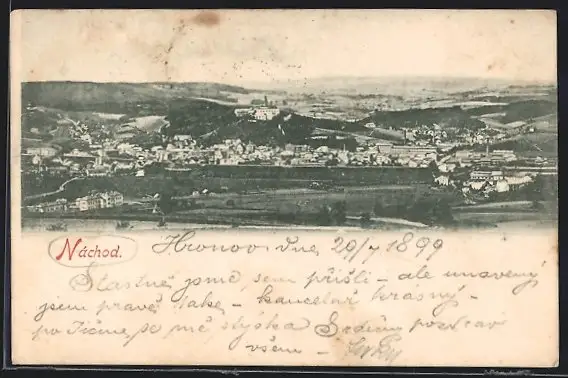 Náchod. Hronov dne 29/7 1899
Šťastně jsme sem přišli - ale unavený
jsem pravě také - kancelář krásný -
po Jičíně se mě stýská Srdečný pozdrav
všem -